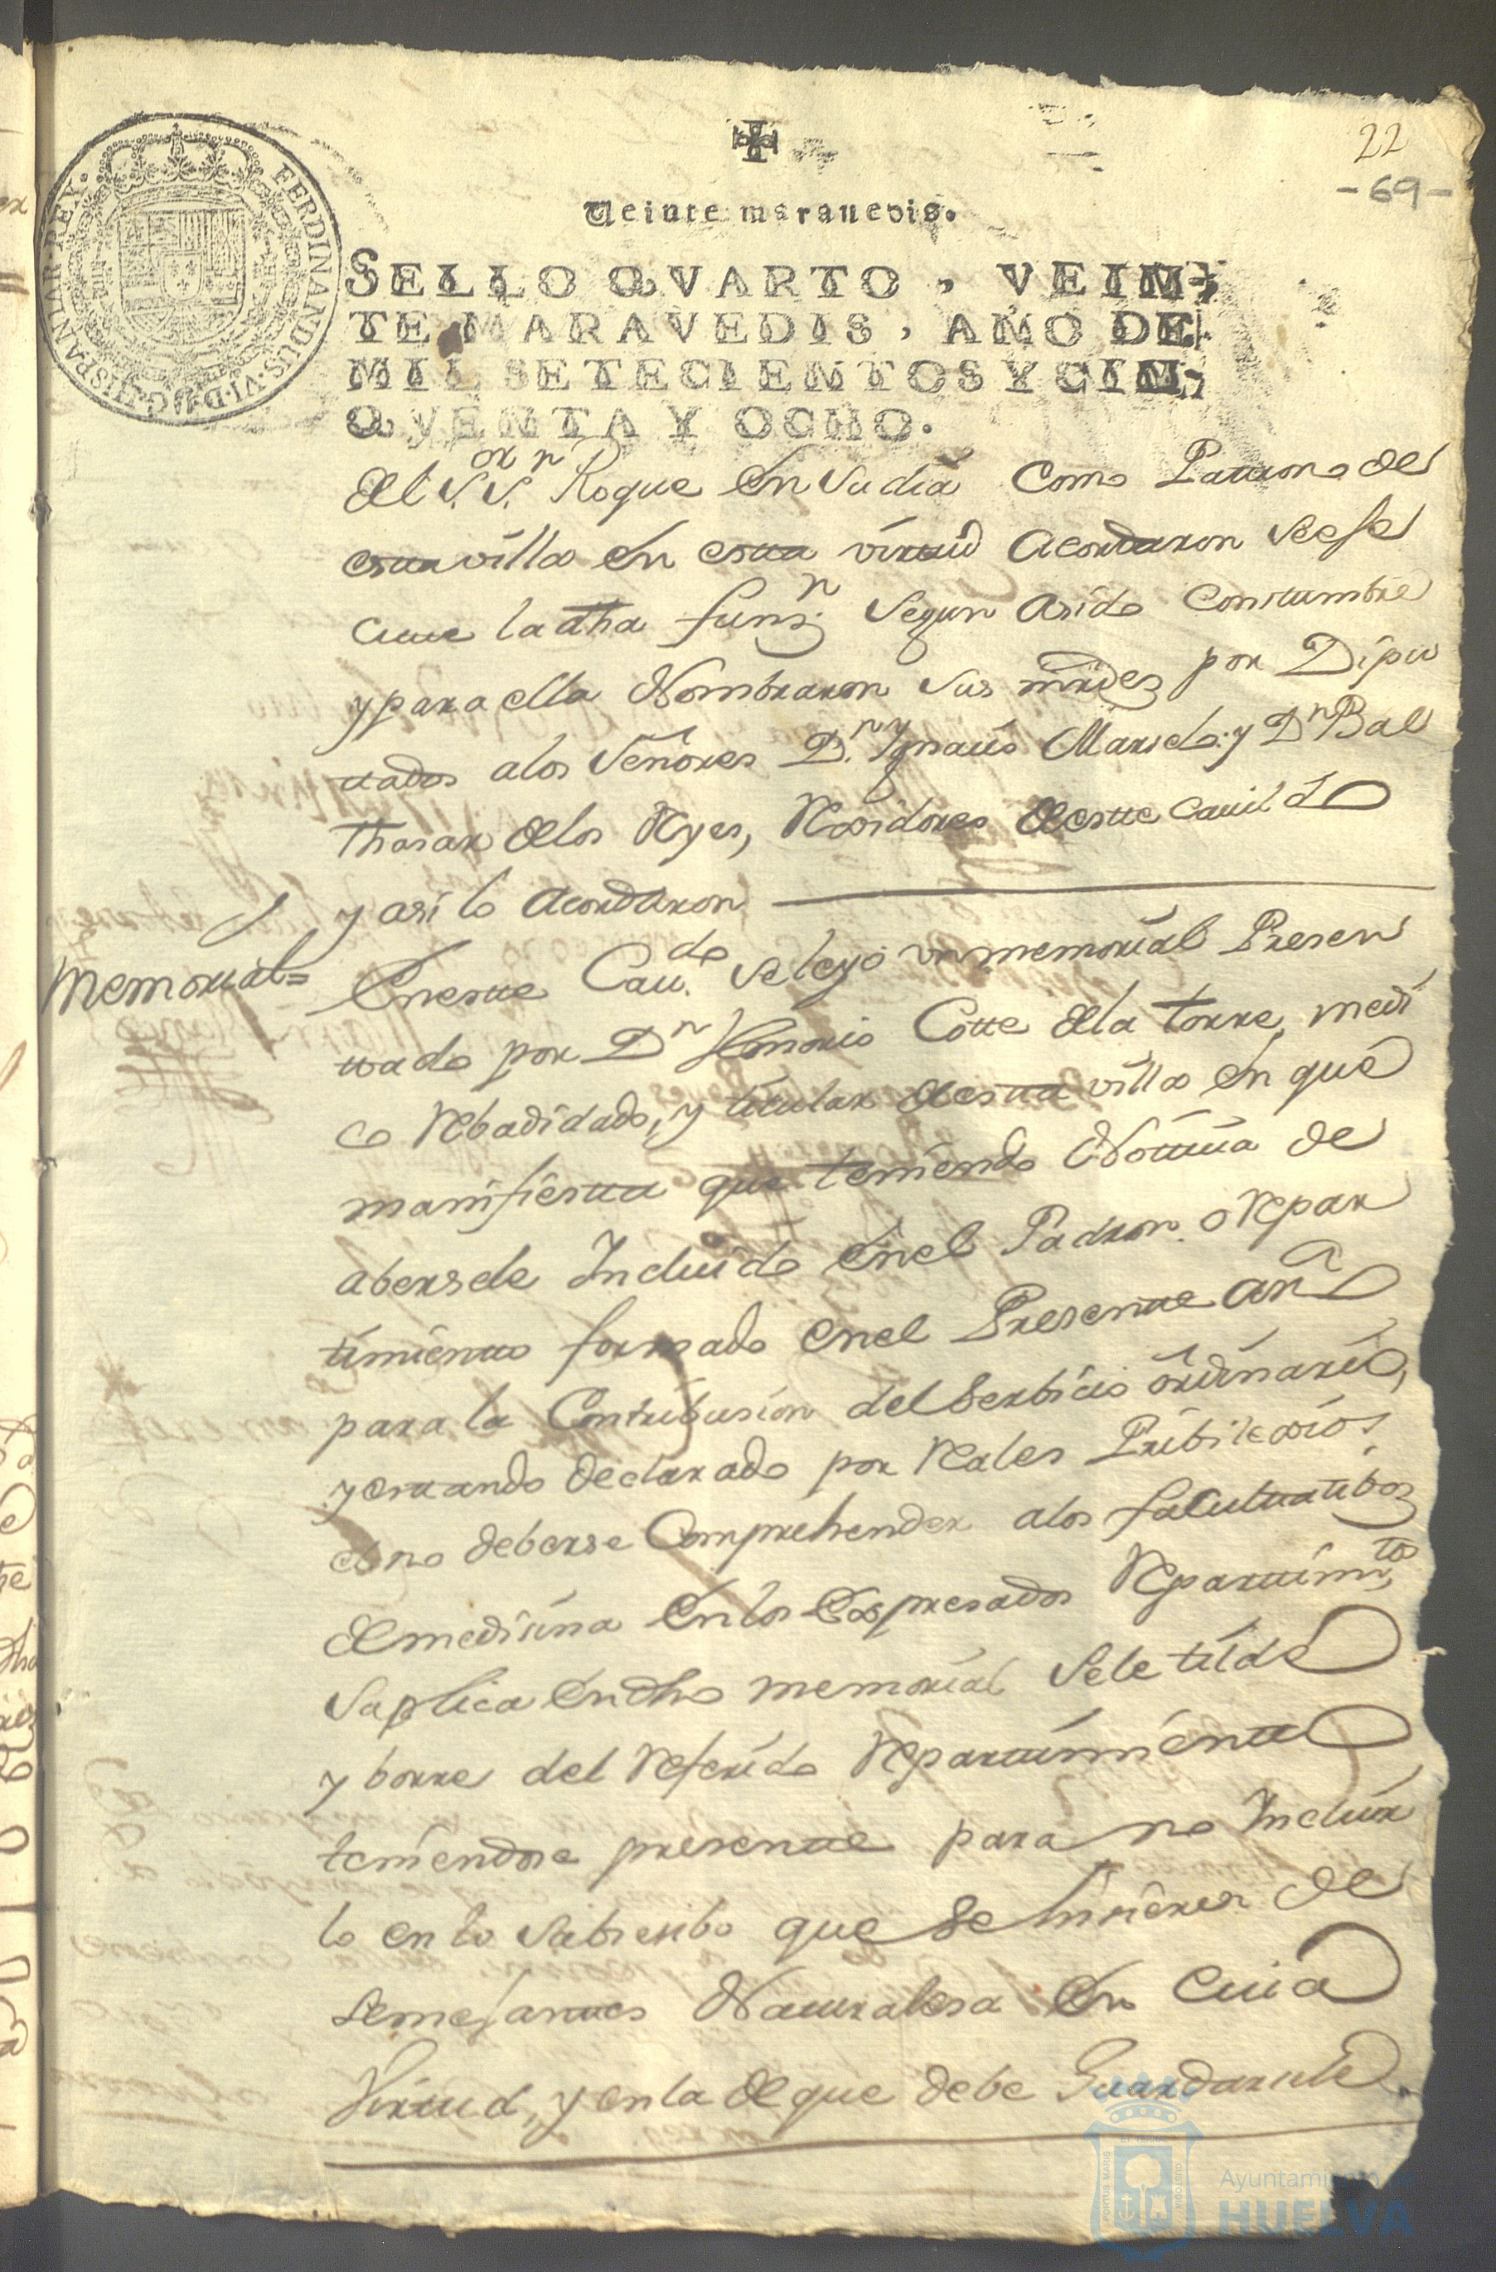 22
- 69 -
Veinte maravedis.
FERDINANDUS·VI·D·G·HISPANIAR·REX·
SELLO QVARTO, VEIN-
TE MARAVEDIS, AÑO DE
MIL SETECIENTOS Y CIN-
QVENTA Y OCHO.
del S.or S.n Roque en su dia como Patrono de
esta villa en esta virtud acordaron se efe
ctue la dha funz.n segun a sido constumbre
y para ella Nombraron sus mrdes por Dipu
tados a los señores D.n Ygnacio Marselo y D.n Bal
thasar de los Reyes, Rexidores de este Cavildo
y asi lo acordaron
Memorial=
En este Cav.do se leyo un memorial Presen
tado por D.n Honorio Cotte de la torre, medi
co Rebadidado, y titular de esta villa en que
manifiesta que teniendo Notticia de
aberse Incluido en el Padron o Repar
timiento formado en el Presente año
para la Contribusion del Serbicio ordinario,
y estando declarado por Reales Pribilexios
el no deberse Comprehender a los facultatibos
de medisina en los Expresados Repartimi.tos
Suplica en dho memorial se le tilde
y borre del Referido Repartimiento
teniendose presente para no Incluir
lo en lo subsesibo que se hisieren de
semejantes Naturalesa en Cuia
Virtud, y en la de que debe Guardarsele
Ayuntamiento de
HUELVA